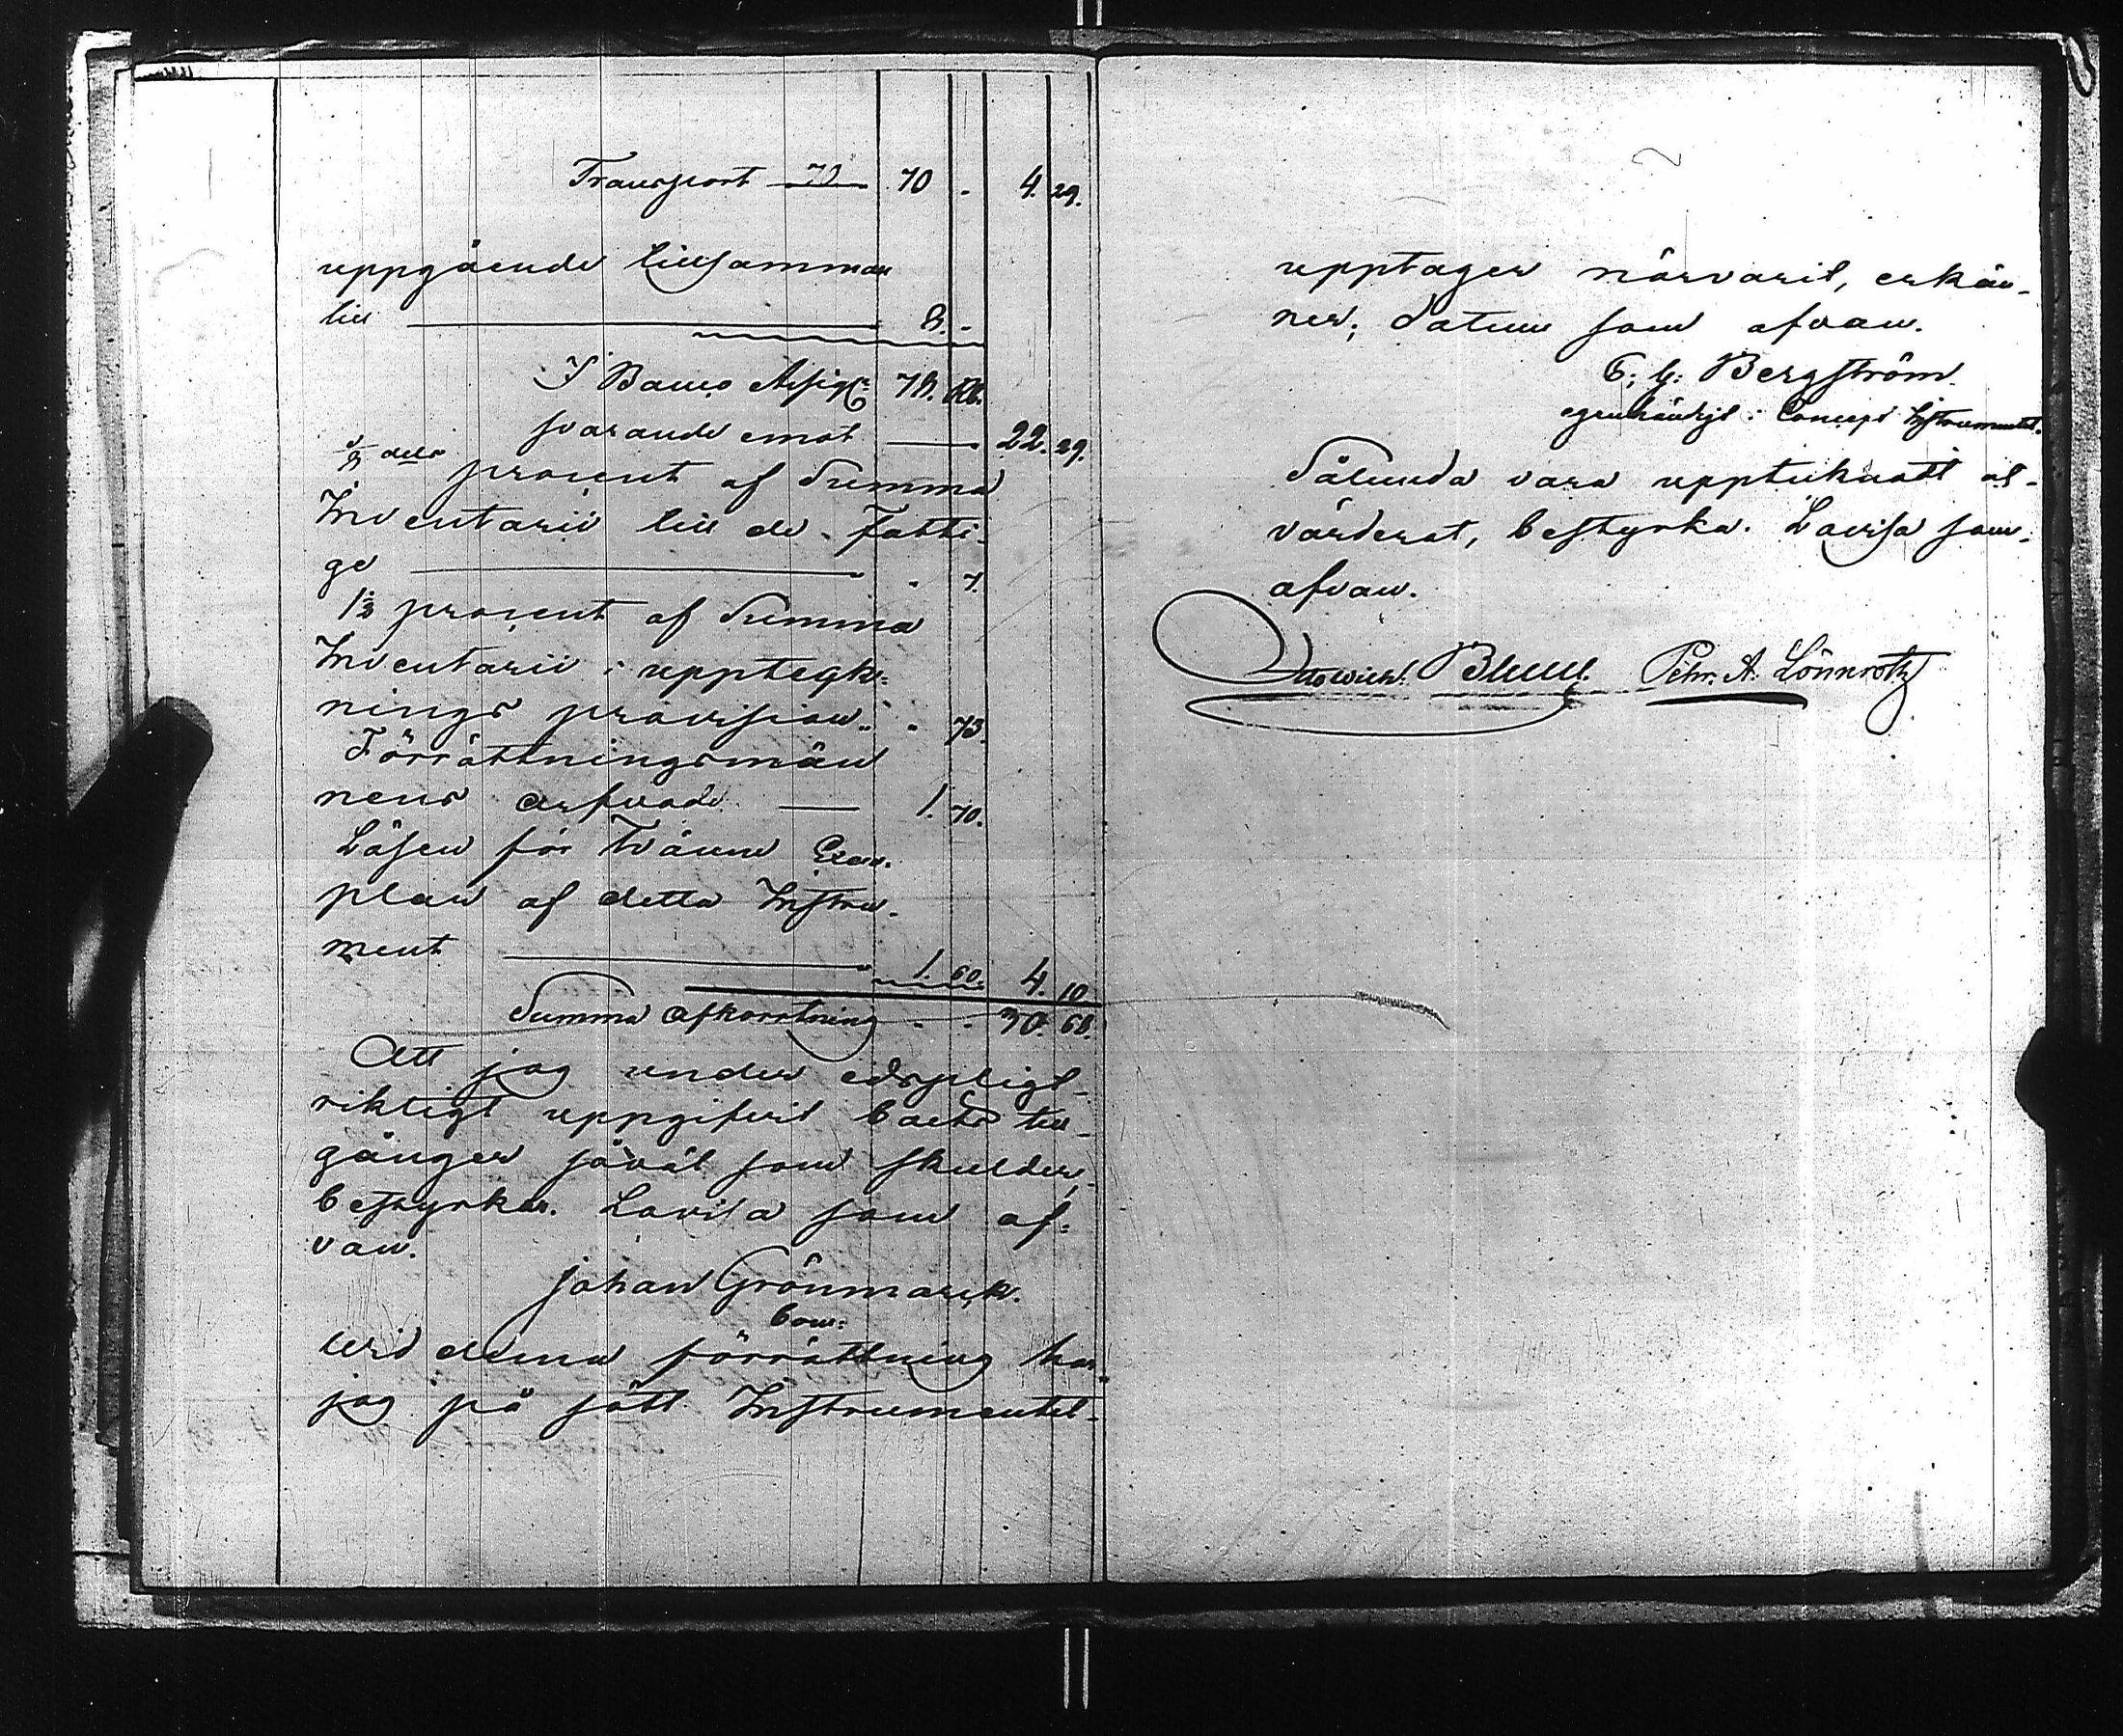 Transport 70 70 - 4. 29.
uppgående tillsamman
till 8. -
I Banco Assigr 78. Rb.
svarande emot 22. 29.
1/8 dels procent af Summa
Inventarii till de fatti-
ge - 7.
1 1/3 procent af Summa
Inventarii i upptegk-
nings provision - 73.
Förrättningsmän
nens arfvode 1. 70.
Lösen för Tvänne Exem-
plar af detta Instru-
ment 1. 60. 4. 10
Summa Afkorrtning - - 30. 68.
Att jag under edspligt
riktigt uppgifvit både till-
gångar såväl som skulder,
bestyrker. Lovisa som of-
van.
Johan Grönmarck.
bom-
Wid denna förrättning har
jag på sätt Instrumentet
upptager närvarit, erkän-
ner, datum som ofvan.
C: G: Bergström
egenhändigt i Concept Instrumentet.
Sålunda vara upptecknatt och
värderat, bestyrka. Lovisa som
ofvan.
Otto Wilh. Bluul. Pehr. A. Lönnroth